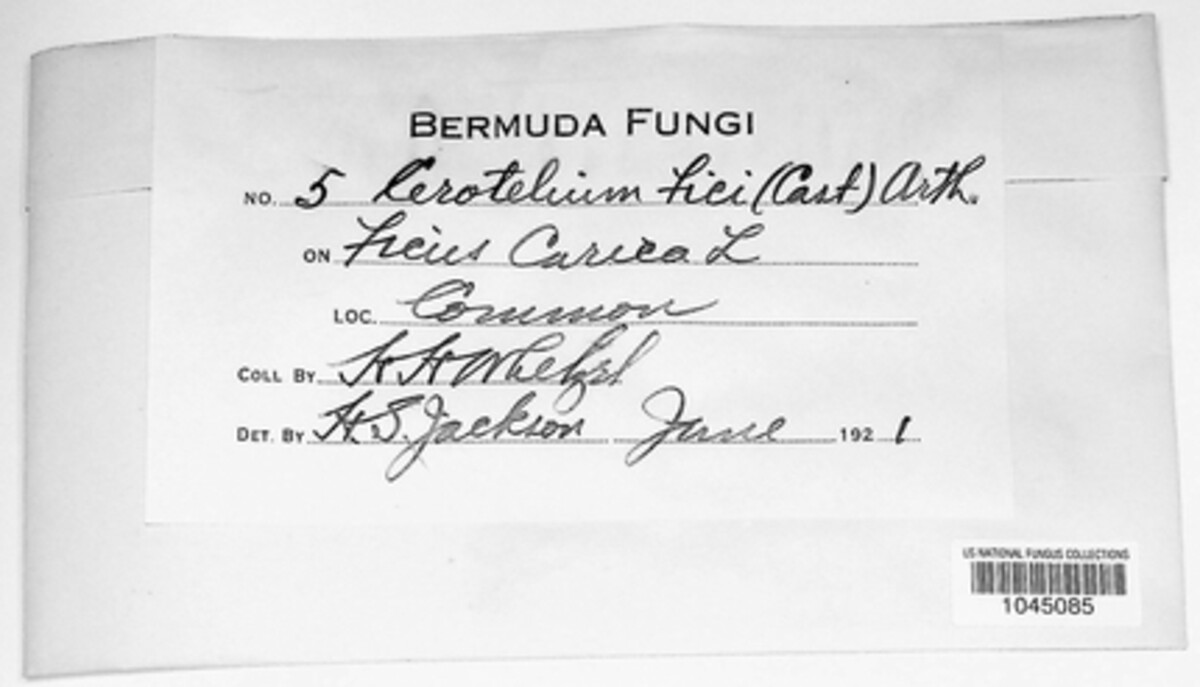 BERMUDA FUNGI
NO. 5 Cerotelium Fici (Cast) Arth.
ON Ficus Carica L
LOC. Common
COLL BY H H Whetzel
DET. BY H.S. Jackson June 1921
US NATIONAL FUNGUS COLLECTIONS
1045085